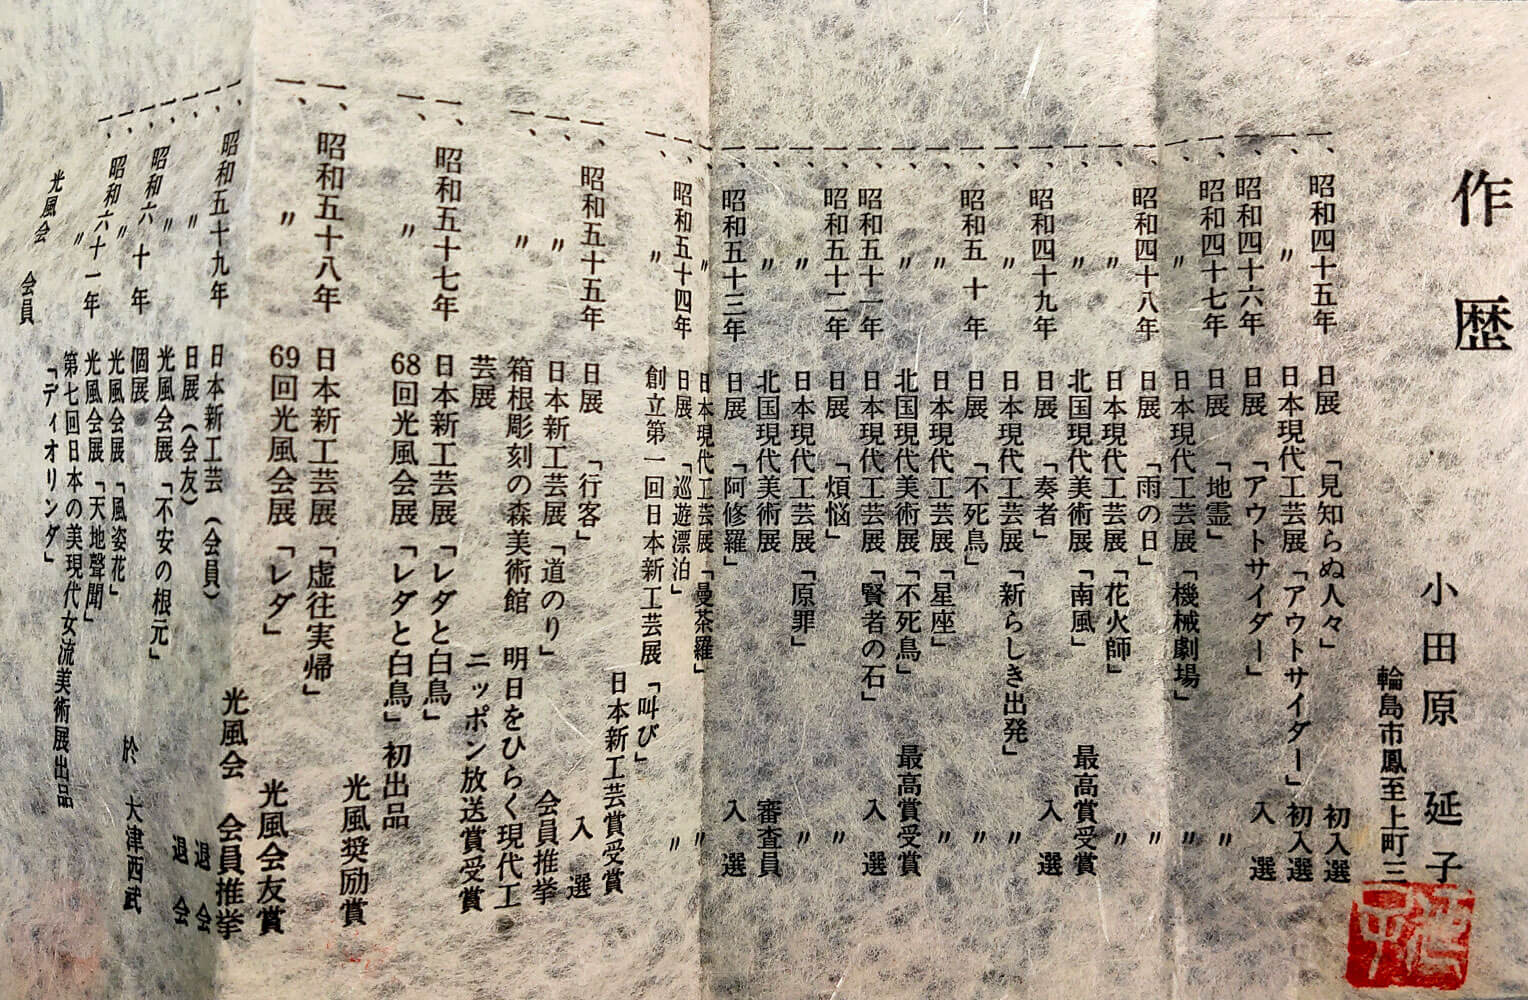 作歴
小田原 延子
輪島市鳳至上町三
一、昭和四十五年 日展 「見知らぬ人々」 初入選
一、 〃 日本現代工芸展「アウトサイダー」 初入選
一、昭和四十六年 日展 「アウトサイダー」 入選
一、昭和四十七年 日展 「地霊」 〃
一、 〃 日本現代工芸展「機械劇場」 〃
一、昭和四十八年 日展 「雨の日」 〃
一、 〃 日本現代工芸展「花火師」 〃
一、 〃 北国現代美術展「南風」 最高賞受賞
一、昭和四十九年 日展 「奏者」 入選
一、 〃 日本現代工芸展「新らしき出発」 〃
一、昭和五十年 日展 「不死鳥」 〃
一、 〃 日本現代工芸展「星座」 〃
一、 〃 北国現代美術展「不死鳥」 最高賞受賞
一、昭和五十一年 日本現代工芸展「賢者の石」 入選
一、昭和五十二年 日展 「煩悩」 〃
一、 〃 日本現代工芸展「原罪」 〃
一、 〃 北国現代美術展 審査員
一、昭和五十三年 日展 「阿修羅」 入選
一、 〃 日本現代工芸展「曼荼羅」 〃
一、昭和五十四年 日展 「巡遊漂泊」 〃
一、 〃 創立第一回日本新工芸展「叫び」
日本新工芸賞受賞
一、昭和五十五年 日展 「行客」 入選
一、 〃 日本新工芸展「道のり」 会員推挙
一、 〃 箱根彫刻の森美術館 明日をひらく現代工
芸展 ニッポン放送賞受賞
一、昭和五十七年 日本新工芸展「レダと白鳥」
一、 〃 68回光風会展「レダと白鳥」初出品
光風奨励賞
一、昭和五十八年 日本新工芸展「虚往実帰」
一、 〃 69回光風会展「レダ」
光風会友賞
光風会 会員推挙
一、昭和五十九年 日本新工芸(会員) 退会
一、 〃 日展(会友) 退会
一、 〃 光風会展「不安の根元」
一、昭和六十年 個展 於 大津西武
一、 〃 光風会展「風姿花」
一、昭和六十一年 光風会展「天地聲聞」
〃 第七回日本の美現代女流美術展出品
「ディオリンダ」
光風会 会員